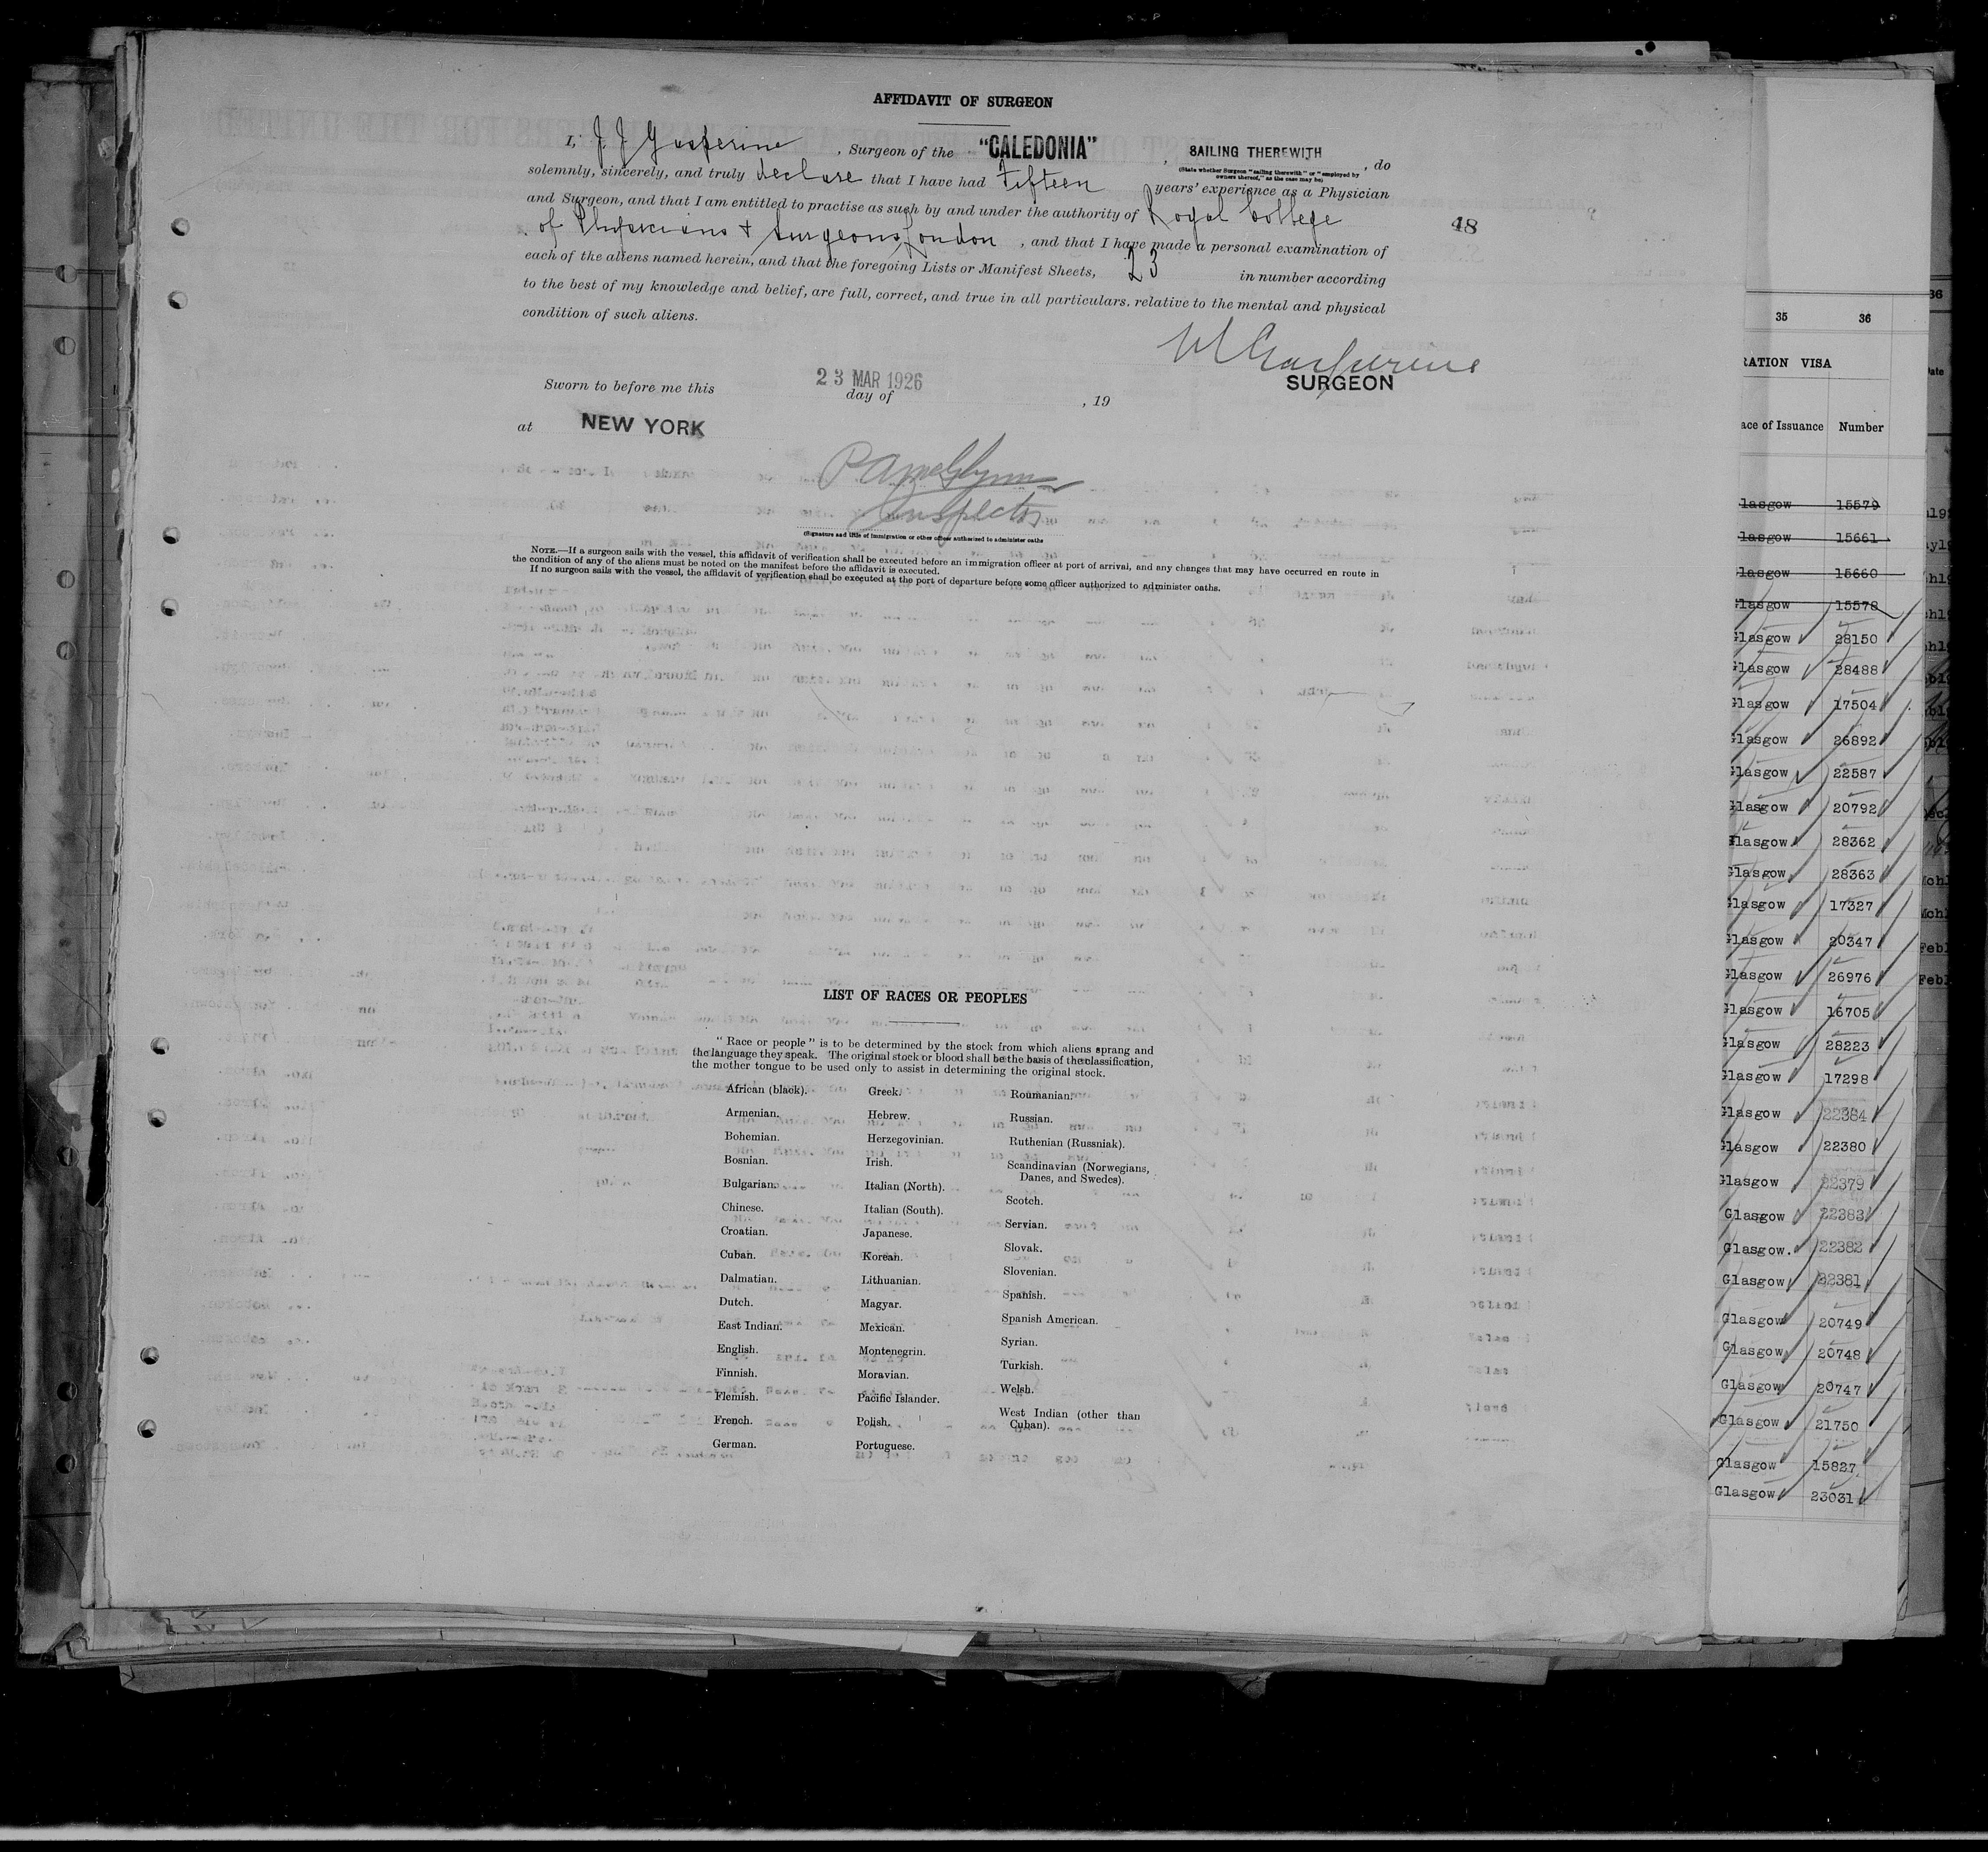 AFFIDAVIT OF SURGEON
I, J. J. , Surgeon of the "CALEDONIA" , SAILING THEREWITH , do
(State whether Surgeon "sailing therewith" or "employed by
owners thereof," as the case may be)
solemnly, sincerely, and truly declare that I have had Fifteen years' experience as a Physician
and Surgeon, and that I am entitled to practise as such by and under the authority of Royal College
of Physicians + Surgeons London , and that I have made a personal examination of
48
each of the aliens named herein, and that the foregoing Lists or Manifest Sheets, 23 in number according
to the best of my knowledge and belief, are full, correct, and true in all particulars, relative to the mental and physical
condition of such aliens.
SURGEON
Sworn to before me this 23 MAR 1926
day of , 19
at NEW YORK
Inspector
(Signature and title of immigration or other officer authorized to administer oaths
NOTE.—If a surgeon sails with the vessel, this affidavit of verification shall be executed before an immigration officer at port of arrival, and any changes that may have occurred en route in
the condition of any of the aliens must be noted on the manifest before the affidavit is executed.
If no surgeon sails with the vessel, the affidavit of verification shall be executed at the port of departure before some officer authorized to administer oaths.
LIST OF RACES OR PEOPLES
"Race or people" is to be determined by the stock from which aliens sprang and
the language they speak. The original stock or blood shall be the basis of the classification,
the mother tongue to be used only to assist in determining the original stock.
African (black).
Armenian.
Bohemian.
Bosnian.
Bulgarian.
Chinese.
Croatian.
Cuban.
Dalmatian.
Dutch.
East Indian.
English.
Finnish.
Flemish.
French.
German.
Greek.
Hebrew.
Herzegovinian.
Irish.
Italian (North).
Italian (South).
Japanese.
Korean.
Lithuanian.
Magyar.
Mexican.
Montenegrin.
Moravian.
Pacific Islander.
Polish.
Portuguese.
Roumanian.
Russian.
Ruthenian (Russniak).
Scandinavian (Norwegians,
Danes, and Swedes).
Scotch.
Servian.
Slovak.
Slovenian.
Spanish.
Spanish American.
Syrian.
Turkish.
Welsh.
West Indian (other than
Cuban).
35 36
RATION VISA
ace of Issuance Number
lasgow 15579
lasgow 15661
lasgow 15660
Glasgow 15578
Glasgow 28150
Glasgow 28488
Glasgow 17504
Glasgow 26892
Glasgow 22587
Glasgow 20792
Glasgow 28362
Glasgow 28363
Glasgow 17327
Glasgow 20347
Glasgow 26976
Glasgow 16705
Glasgow 28223
Glasgow 17298
Glasgow 22384
Glasgow 22380
Glasgow 22379
Glasgow 22383
Glasgow. 22382
Glasgow 22381
Glasgow 20749
Glasgow 20748
Glasgow 20747
Glasgow 21750
Glasgow 15827
Glasgow 23031
36